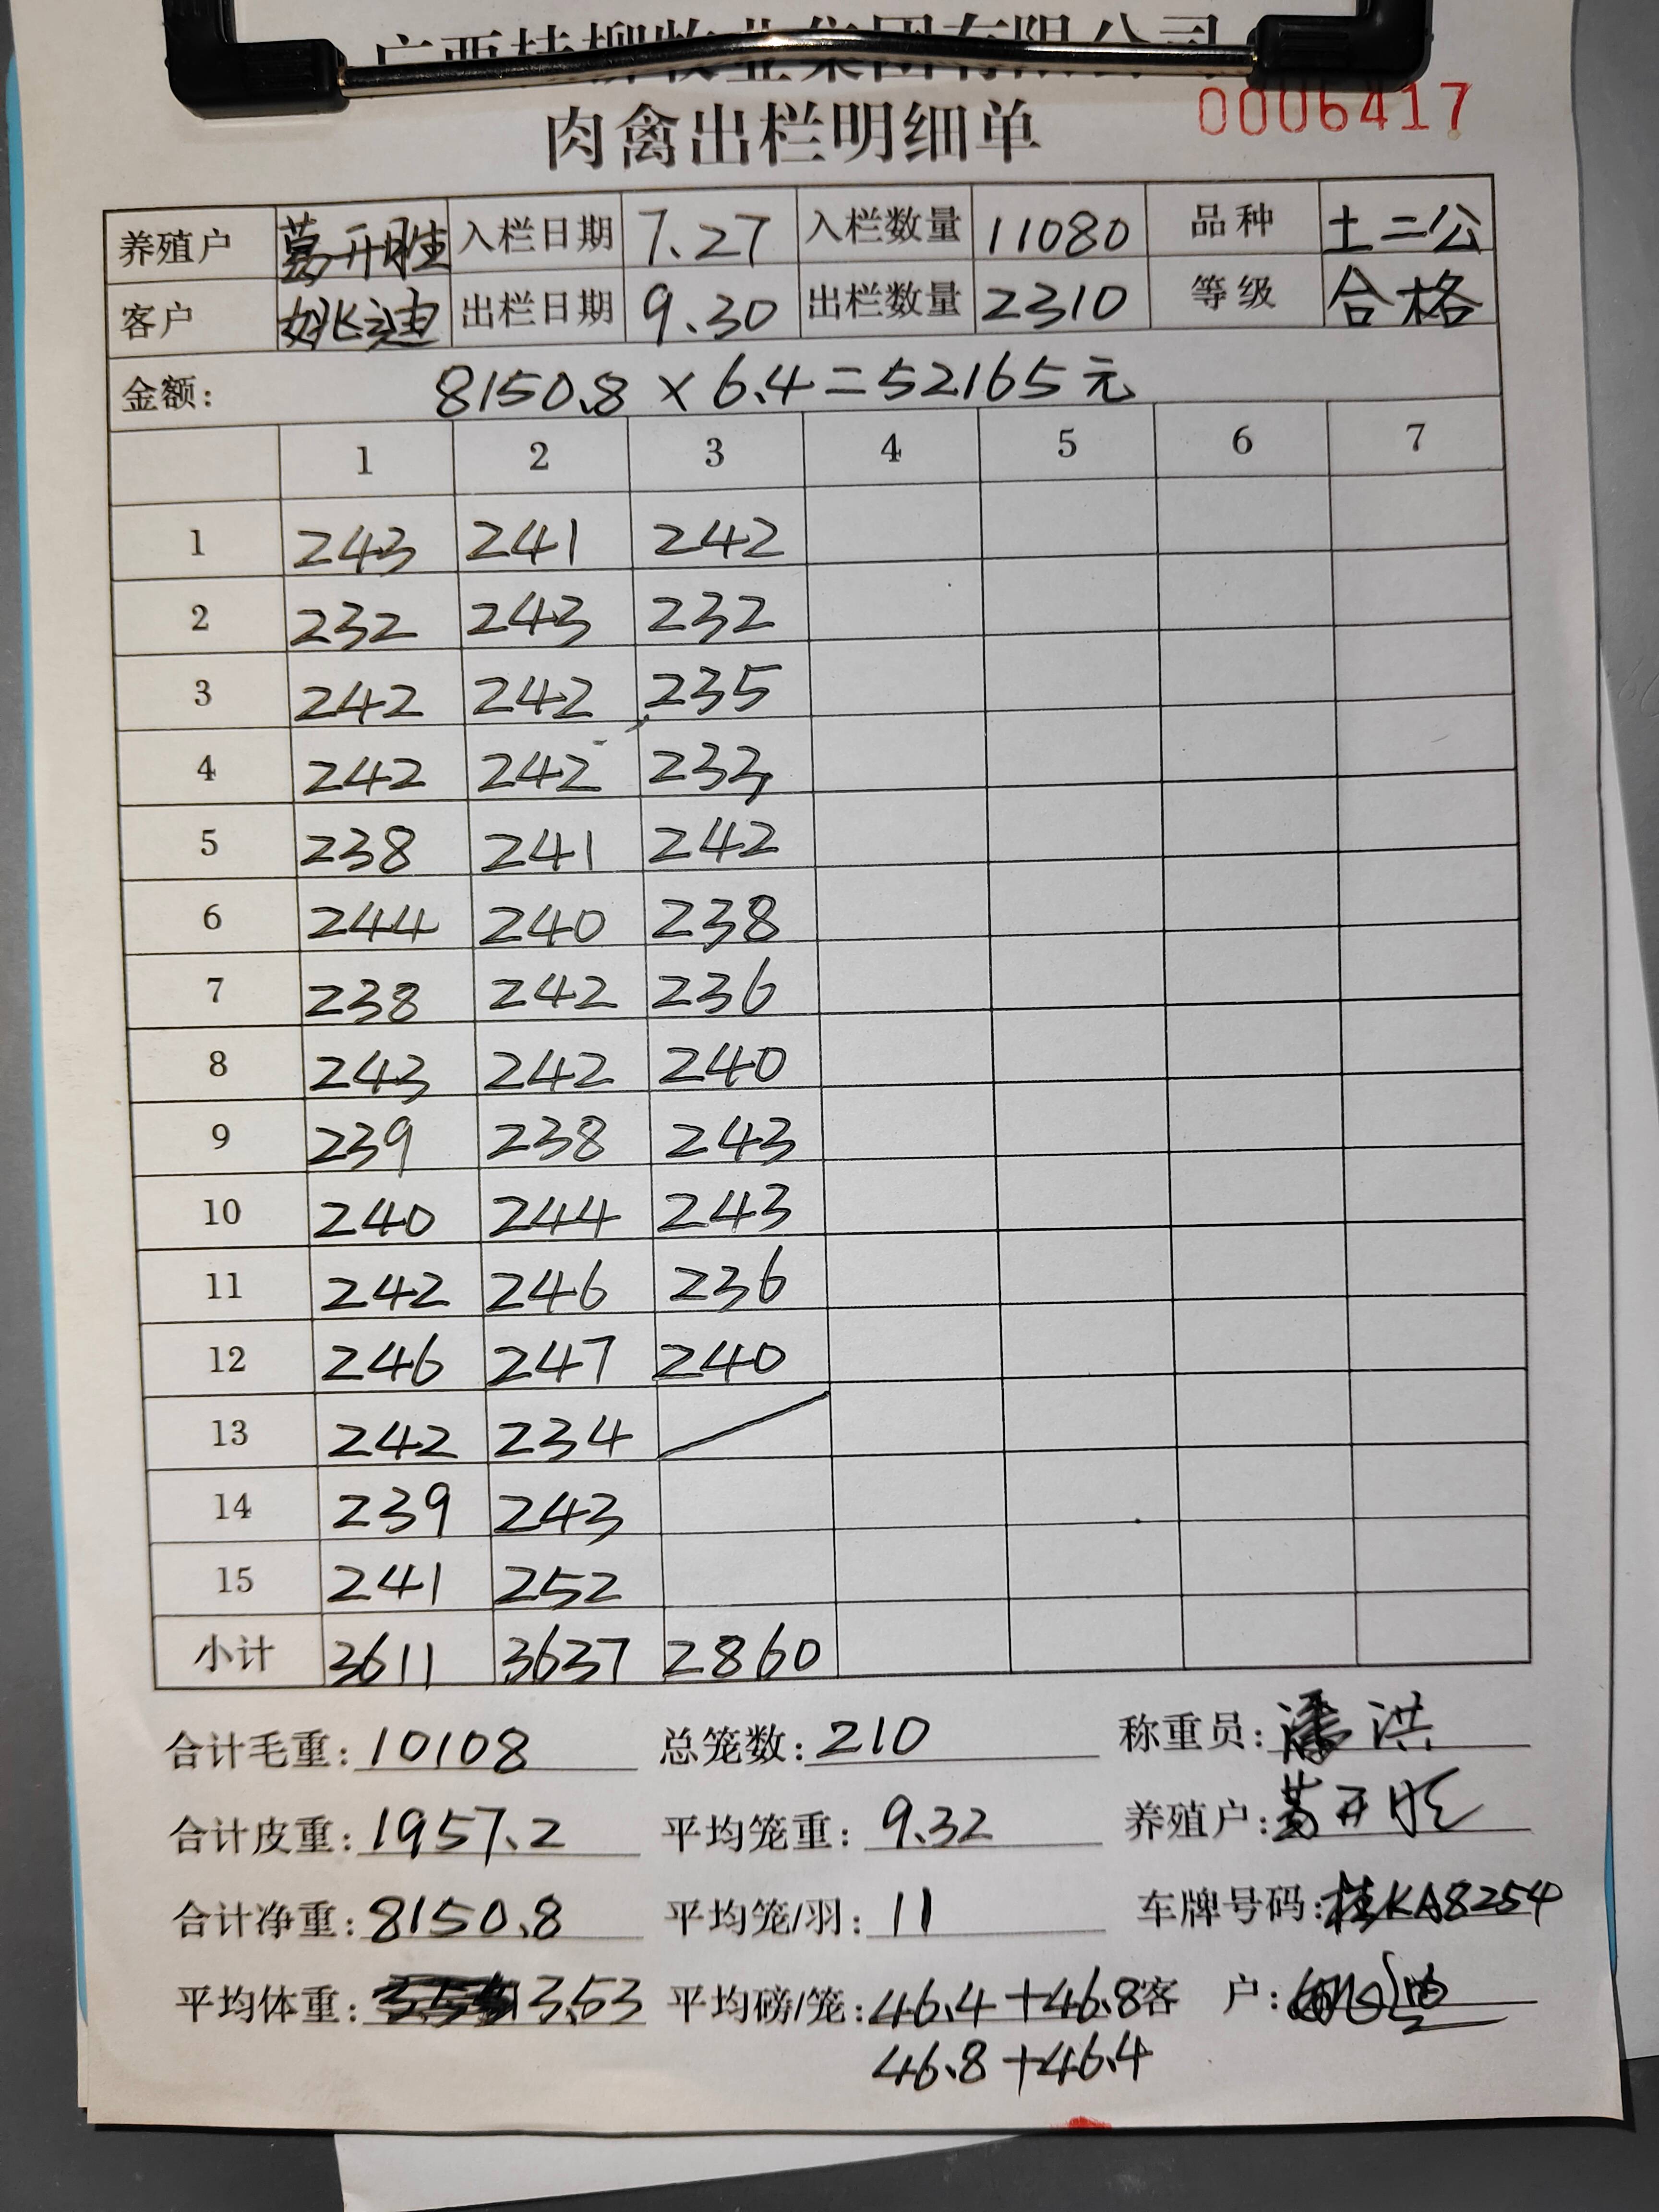 肉禽出栏明细单 0006417
养殖户 葛开胜 入栏日期 7.27 入栏数量 11080 品种 土二公
客户 姚迪 出栏日期 9.30 出栏数量 2310 等级 合格
金额: 8150.8×6.4=52165元
1 2 3 4 5 6 7
1 243 241 242
2 232 243 232
3 242 242 235
4 242 242 233
5 238 241 242
6 244 240 238
7 238 242 236
8 243 242 240
9 239 238 243
10 240 244 243
11 242 246 236
12 246 247 240
13 242 234
14 239 243
15 241 252
小计 3611 3637 2860
合计毛重: 10108 总笼数: 210 称重员: 潘洪
合计皮重: 1957.2 平均笼重: 9.32 养殖户: 葛开胜
合计净重: 8150.8 平均笼/羽: 11 车牌号码: 桂KA8254
平均体重: 3.53 平均磅/笼: 46.4+46.8 客 户:
46.8+46.4